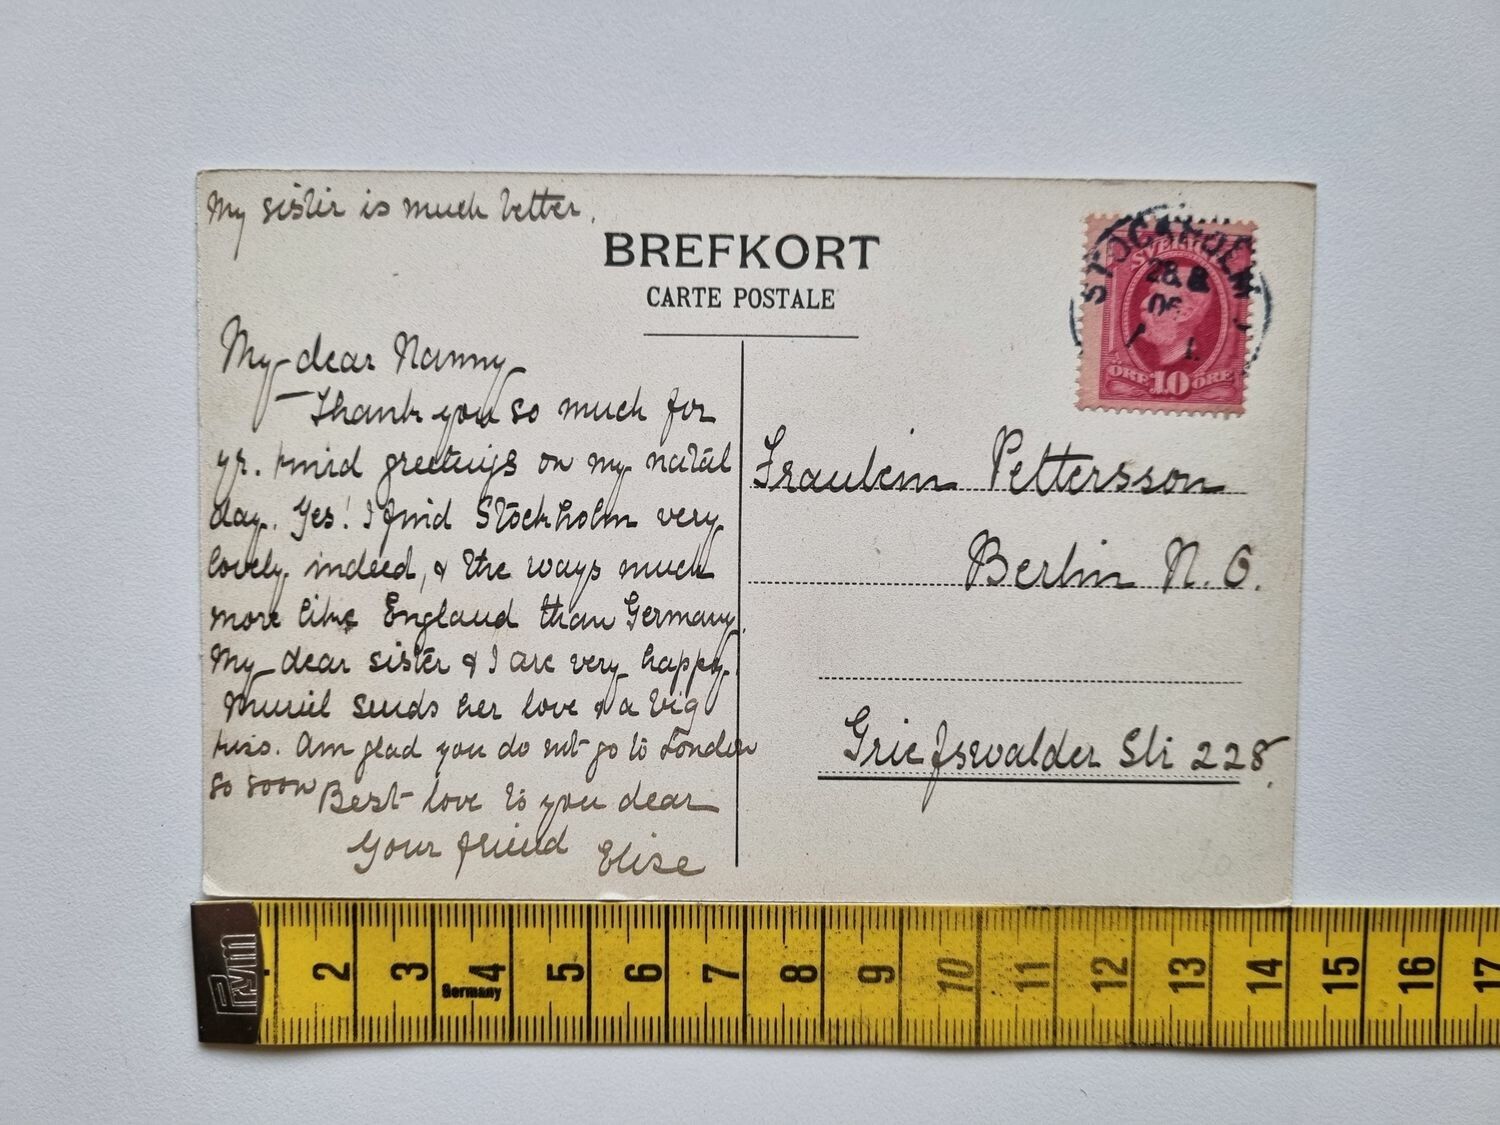 My sister is much better.
BREFKORT
CARTE POSTALE
STOCKHOLM
28 8
06
SVERIGE
ÖRE 10 ÖRE
My dear Nanny
Thank you so much for
yr. kind greetings on my natal
day. Yes! I find Stockholm very
lovely indeed, & the ways much
more like England than Germany.
My dear sister & I are very happy.
Muriel sends her love & a big
kiss. Am glad you do not go to London
so soon
Best love to you dear
Your friend Elise
Fraulein Pettersson
Berlin N. O.
Griefswalder Str 228.
Prym
2 3 4 5 6 7 8 9 10 11 12 13 14 15 16 17
Germany